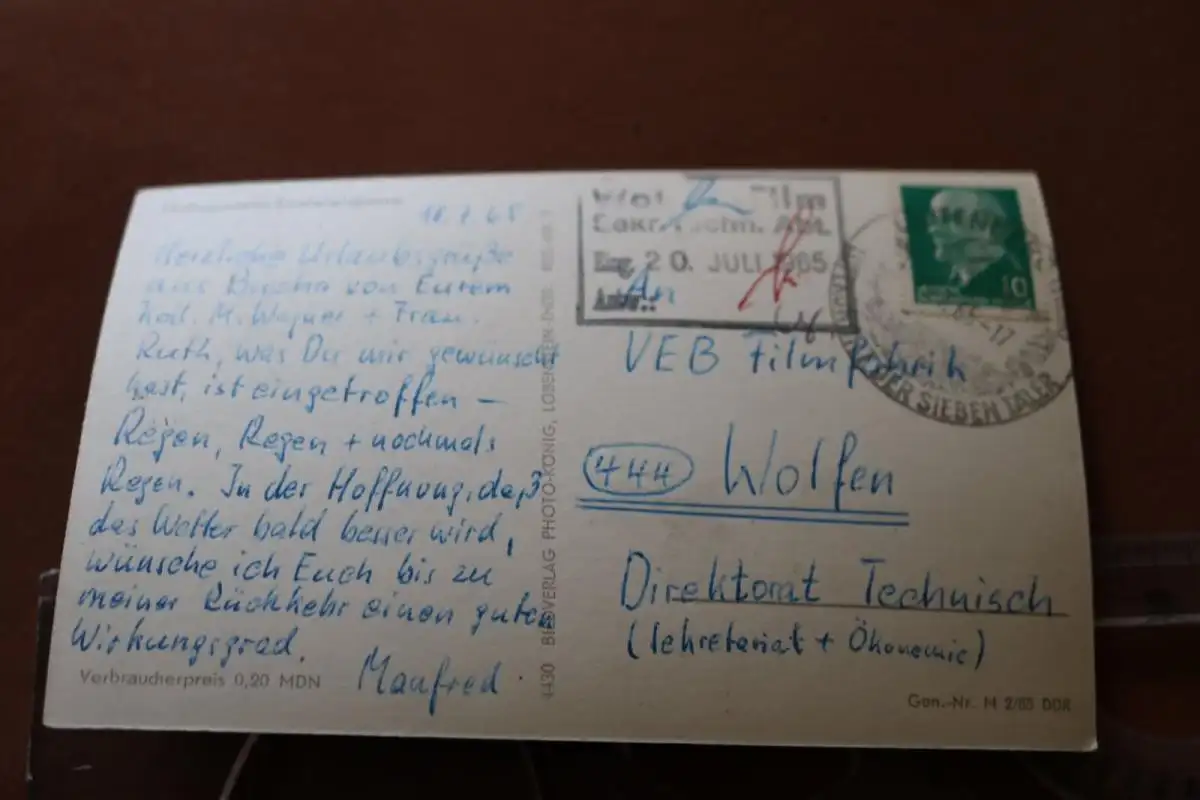 Herzliche Urlaubsgrüße
aus Bucha von Eurem
Koll. M. Wagner + Frau.
Ruth, was Du mir gewünscht
hast, ist eingetroffen –
Regen, Regen + nochmals
Regen. In der Hoffnung, daß
das Wetter bald besser wird,
wünsche ich Euch bis zu
meiner Rückkehr einen guten
Wirkungsgrad.
Manfred.
Verbraucherpreis 0,20 MDN
4430 BILDVERLAG PHOTO-KÖNIG, LOBENSTEIN
Film
Sekr. Techn. Abt.
Eing. 20. JULI 1965
An
VEB Filmfabrik
444 Wolfen
Direktorat Technisch
(Sekretariat + Ökonomie)
Gen.-Nr. M 2/65 DDR
10
-17
DER SIEBEN TÄLER